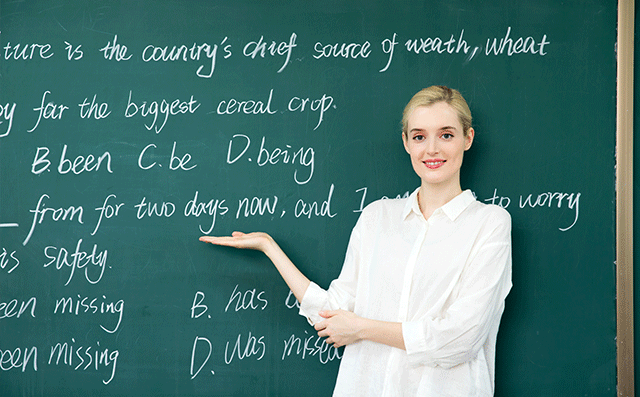 ture is the country's chief source of weath, wheat
y far the biggest cereal crop.
B.been C.be D.being
_ from for two days now, and I to worry
is safely.
een missing B. has
een missing D. was missed